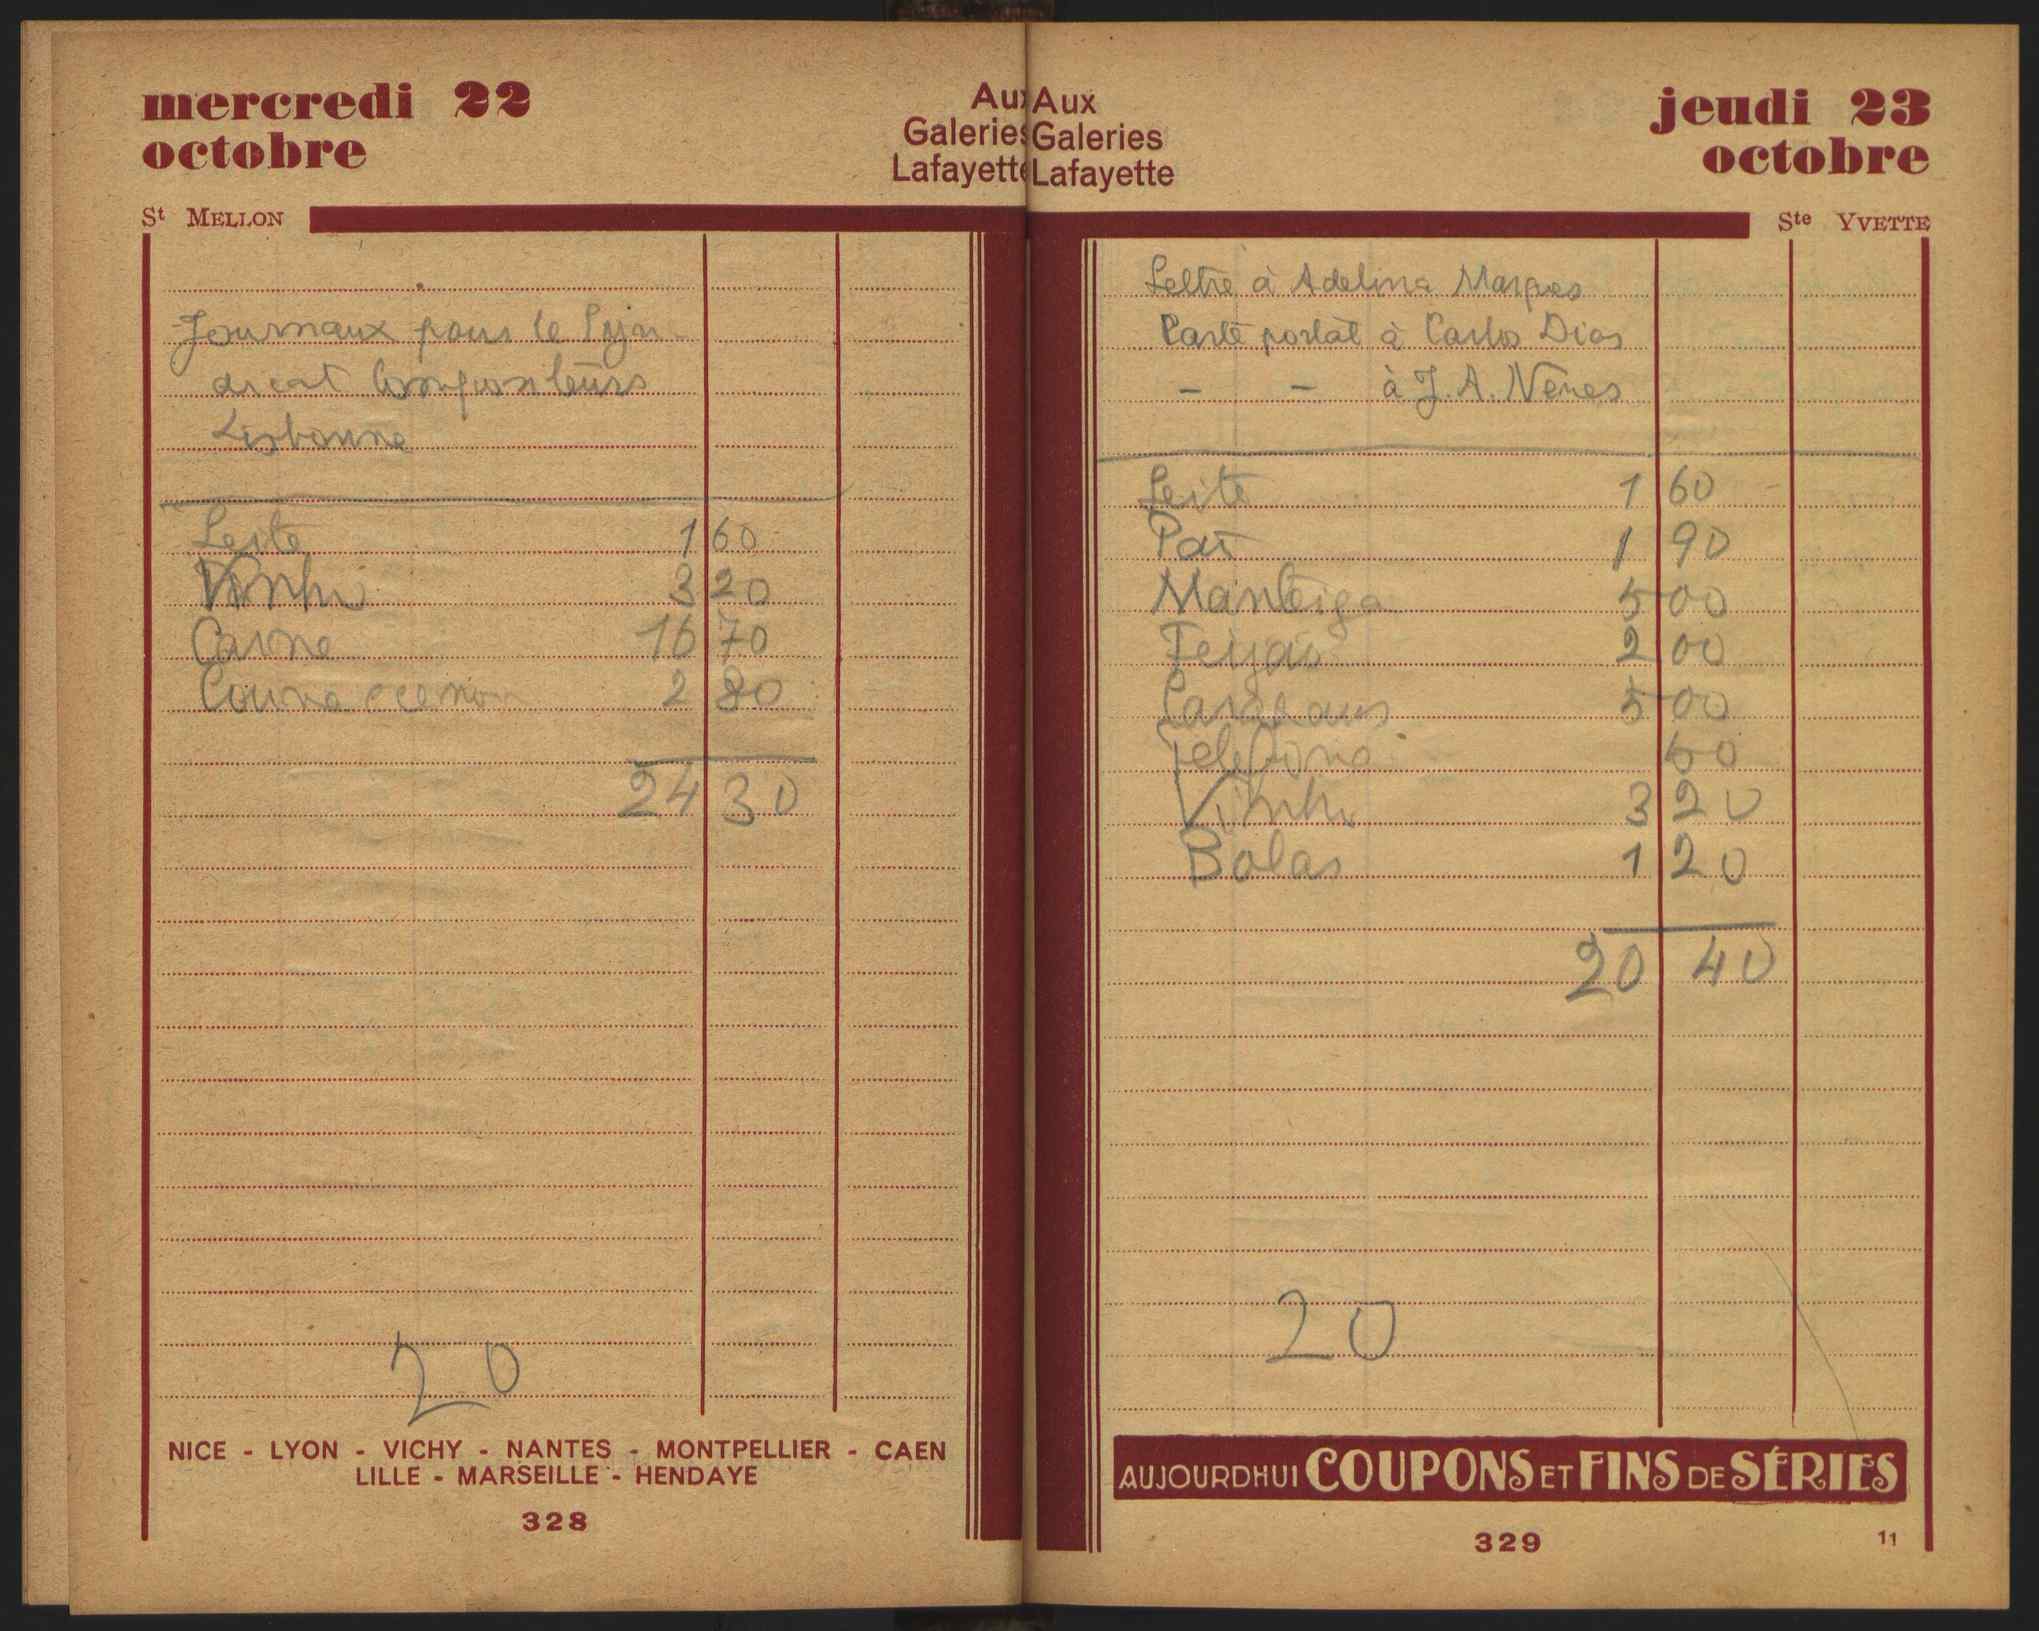 mercredi 22
octobre
Aux
Galeries
Lafayette
St MELLON
Journaux pour le Syn-
dicat Compositeurs
Lisbonne
Leite 1 60
Vinho 3 20
Carne 16 70
2 80
24 30
20
NICE - LYON - VICHY - NANTES - MONTPELLIER - CAEN
LILLE - MARSEILLE - HENDAYE
328
Aux
Galeries
Lafayette
jeudi 23
octobre
Ste YVETTE
Lettre à Adelina Marques
Carte postal à Carlos Dias
- - à J. A. Neves
Leite 1 60
Pão 1 90
Manteiga 5 00
Feijão 2 00
5 00
Telefone 50
Vinho 3 20
Bolas 1 20
20 40
20
AUJOURDHUI COUPONS ET FINS DE SÉRIES
329
11